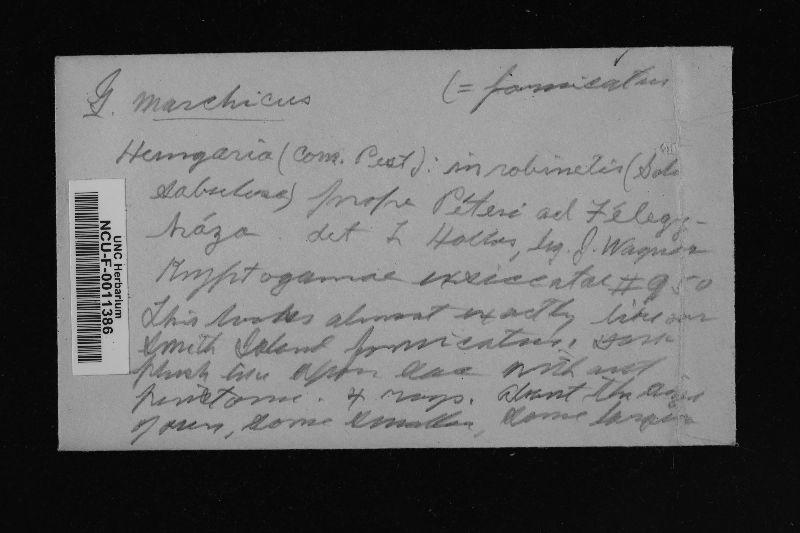 G. marchicus (= fornicatus
Hungaria (Com. Pest): in robinetis (Solo
sabuloso) prope Péteri ad Félegy-
háza det L Hollos, leg. J. Wagner
Kryptogamae exsiccatae # 950
This looks almost exactly like our
Smith Island fornicatus.
plush like upon sac without
peristome. 4 rays. About the size
of ours, some smaller, some larger
UNC Herbarium
NCU-F-0011386